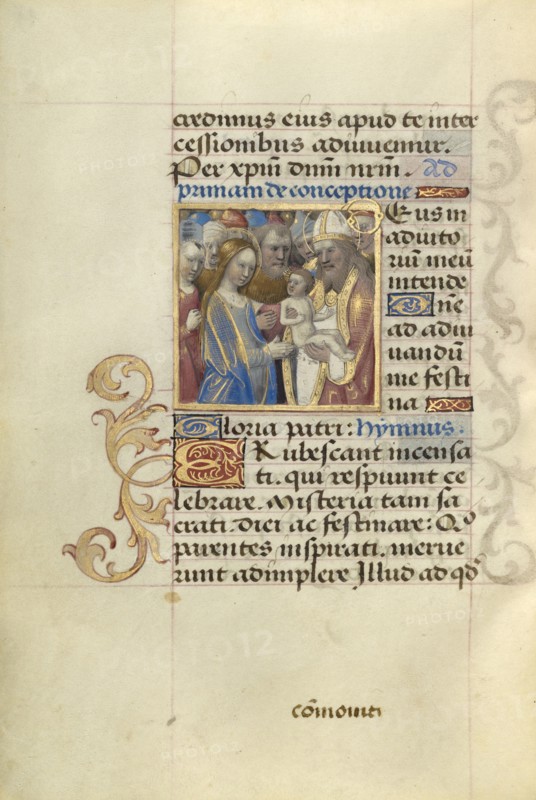 cedimus eius apud te inter
cessionibus adiuuemur.
Per xp̄m dn̄m nr̄m. Ad
primam de conceptione
Deus in
adiuto
riū meū
intende
Dn̄e
ad adiu
uandū
me festi
na
Gloria patri: hymnus.
Erubescant incensa
ti. qui respuunt ce
lebrare. Misteria tam sa
crati. diei ac festinare: Qᵒ
parentes inspirati. merue
runt adimplere Illud ad qđ
cōmoniti
PHOTO12